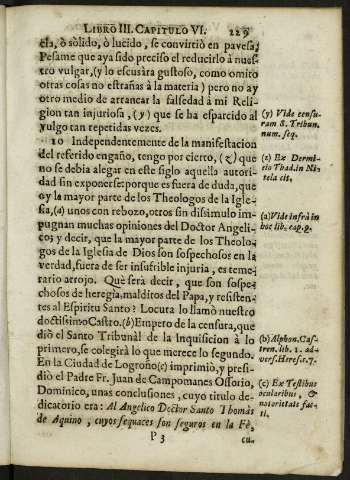 LIBRO III. CAPITULO VI. 229
cia, ò sòlido, ò lucido, se convirtiò en pavesa;
Pesame que aya sido preciso el reducirlo à nues-
tro vulgar, (y lo escusàra gustoso, como omito
otras cosas no estrañas à la materia) pero no ay
otro medio de arrancar la falsedad à mi Reli-
gion tan injuriosa, (y) que se ha esparcido al
vulgo tan repetidas vezes.
(y) Vide censu-
ram S. Tribun.
num. seq.
10 Independentemente de la manifestacion
del referido engaño, tengo por cierto, (z) que
no se debia alegar en este siglo aquella autori-
dad sin exponerse: porque es fuera de duda, que
oy la mayor parte de los Theologos de la Igle-
sia, (a) unos con rebozo, otros sin disimulo im-
pugnan muchas opiniones del Doctor Angeli-
co; y decir, que la mayor parte de los Theolo-
gos de la Iglesia de Dios son sospechosos en la
verdad, fuera de ser insufrible injuria, es teme-
rario arrojo. Què serà decir, que son sospe-
chosos de heregia, malditos del Papa, y resisten-
tes al Espiritu Santo? Locura lo llamò nuestro
doctissimo Castro. (b) Empero de la censura, que
diò el Santo Tribunàl de la Inquisicion à lo
primero, se colegirà lo que merece lo segundo.
En la Ciudad de Logroño (c) imprimiò, y presi-
diò el Padre Fr. Juan de Campomanes Ossorio,
Dominico, unas conclusiones, cuyo titulo de-
dicatorio era: Al Angelico Doctor Santo Thomàs
de Aquino, cuyos sequaces son seguros en la Fè,
(z) Ex Dermi-
rio Thad. in Ni-
tela cit.
(a) Vide infrà in
hoc lib. cap. 9.
(b) Alphon. Cas-
tren. lib. 1. ad-
vers. Heres. c. 7.
(c) Ex Testibus
ocularibus, &
notorietate fac-
ti.
P 3 cu-